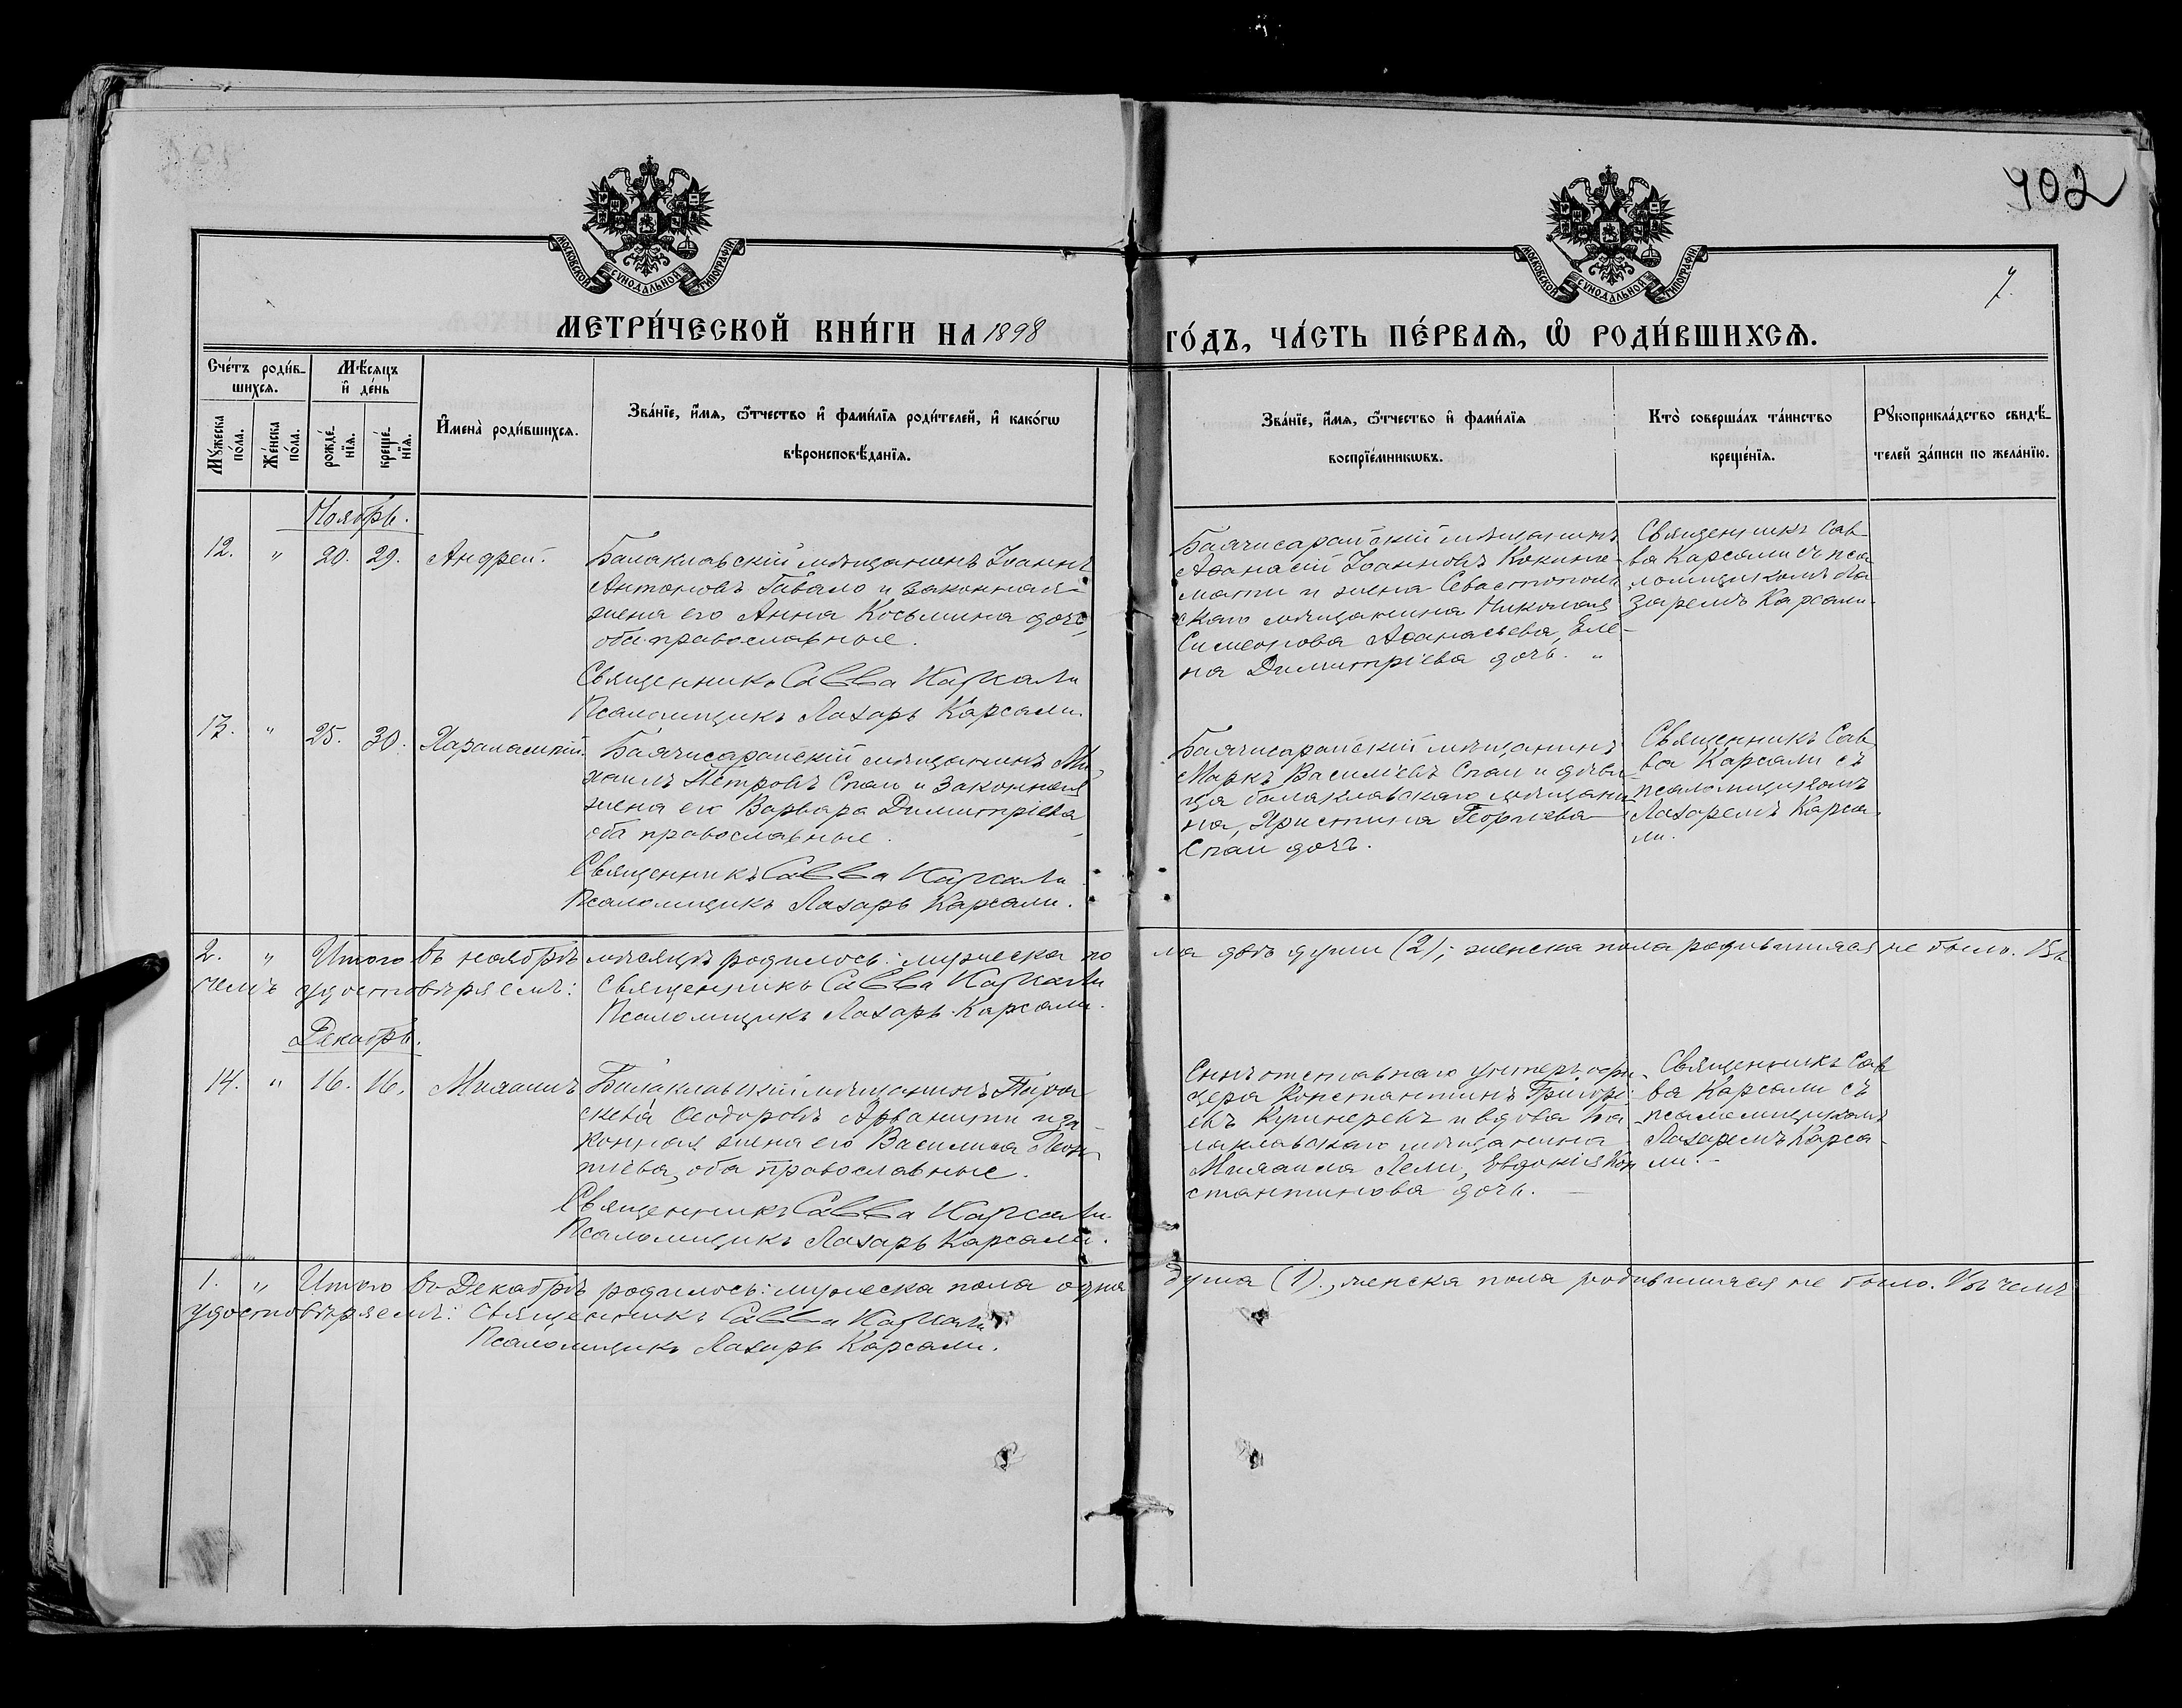 402
МОСКОВСКОЙ СѴНОДАЛЬНОЙ ТИПОГРАФІИ
МОСКОВСКОЙ СѴНОДАЛЬНОЙ ТИПОГРАФІИ
7.
МЕТРИ́ЧЕСКОЙ КНИ́ГИ НА 1898 ГО́ДЪ, ЧА́СТЬ ПЕ́РВАѦ, Ѽ РОДИ́ВШИХСѦ.
Сче́тъ роди́в-
шихсѧ.
Мѣ́сяцъ
и҆ де́нь
Мꙋ́жеска
по́ла.
Же́нска
по́ла.
рожде́-
нїѧ.
креще́-
нїѧ.
И҆мена̀ роди́вшихсѧ.
Зва́нїе, и҆́мѧ, ѻ҆́тчество и҆ фами́лїѧ роди́телей, и҆ како́гѡ
вѣроисповѣ́данїѧ.
Зва́нїе, и҆́мѧ, ѻ҆́тчество и҆ фами́лїѧ
воспрїе́мникѡвъ.
Кто̀ соверша́лъ та́инство
креще́нїѧ.
Рꙋкоприкла́дство свидѣ́-
телей за́писи по жела́нїю.
Ноябрь.
12. " 20. 29. Андрей.
Балаклавскій мѣщанинъ Іоаннъ
Антоновъ Гавало и законная
жена его Анна Косьмина дочь,
оба православные.
Священникъ Савва Карсали
Псаломщикъ Лазарь Карсали.
Бахчисарайскій мѣщанинъ
Аѳанасій Іоанновъ Кокине-
мати и жена Севастополь
скаго мѣщанина Николая
Симеонова Аѳанасьева, Еле-
на Димитріева дочь. "
Священникъ Сав
ва Карсали съ пса
ломщикомъ Ла
заремъ Карсали.
13. " 25. 30. Харалампій.
Бахчисарайскій мѣщанинъ Ми
хаилъ Петровъ Спаи и законная
жена его Варвара Димитріева,
оба православные.
Священникъ Савва Карсали
Псаломщикъ Лазарь Карсали.
Бахчисарайскій мѣщанинъ
Маркъ Василіевъ Спаи и дѣви-
ца балаклавскаго мѣщани
на, Христина Георгіева
Спаи дочь.
Священникъ Сав
ва Карсали съ
псаломщикомъ
Лазаремъ Карса
ли.
2. " Итого въ ноябрѣ мѣсяцѣ родилось: мужеска по ла двѣ души (2); женска пола родившихся не было. Въ
чемъ удостовѣряемъ: Священникъ Савва Карсали
Псаломщикъ Лазарь Карсали.
Декабрь.
14. " 16. 16. Михаилъ
Балаклавскій мѣщанинъ
Ѳеодоровъ Арванити и за
конная жена его Василиса Леон
тіева, оба православные.
Священникъ Савва Карсали
Псаломщикъ Лазарь Карсали.
Сынъ отставнаго унтеръ офи-
цера Константинъ Григорі-
евъ и вдова Ба
лаклавскаго мѣщанина
Михаила Лели, Евдокія Кон
стантинова дочь.
Священникъ Сав
ва Карсали съ
псаломщикомъ
Лазаремъ Карса-
ли.
1. " Итого въ Декабрѣ родилось: мужеска пола одна душа (1)., женска пола родившихся не было. Въ чемъ
удостовѣряемъ: Священникъ Савва Карсали
Псаломщикъ Лазарь Карсали.